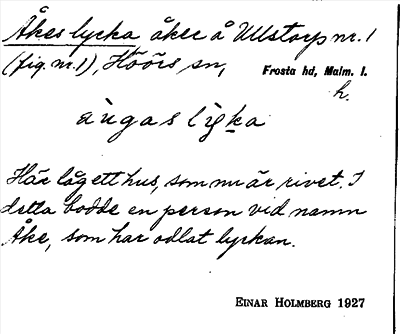 Åkeslycka åker å Ullstorp nr. 1
(fig. nr. 1), Höörs sn, Frosta hd, Malm. l.
h.
àu̇gas lỳka
Här låg ett hus, som nu är rivet. I
detta bodde en person vid namn
Åke, som har odlat lyckan.
EINAR HOLMBERG 1927